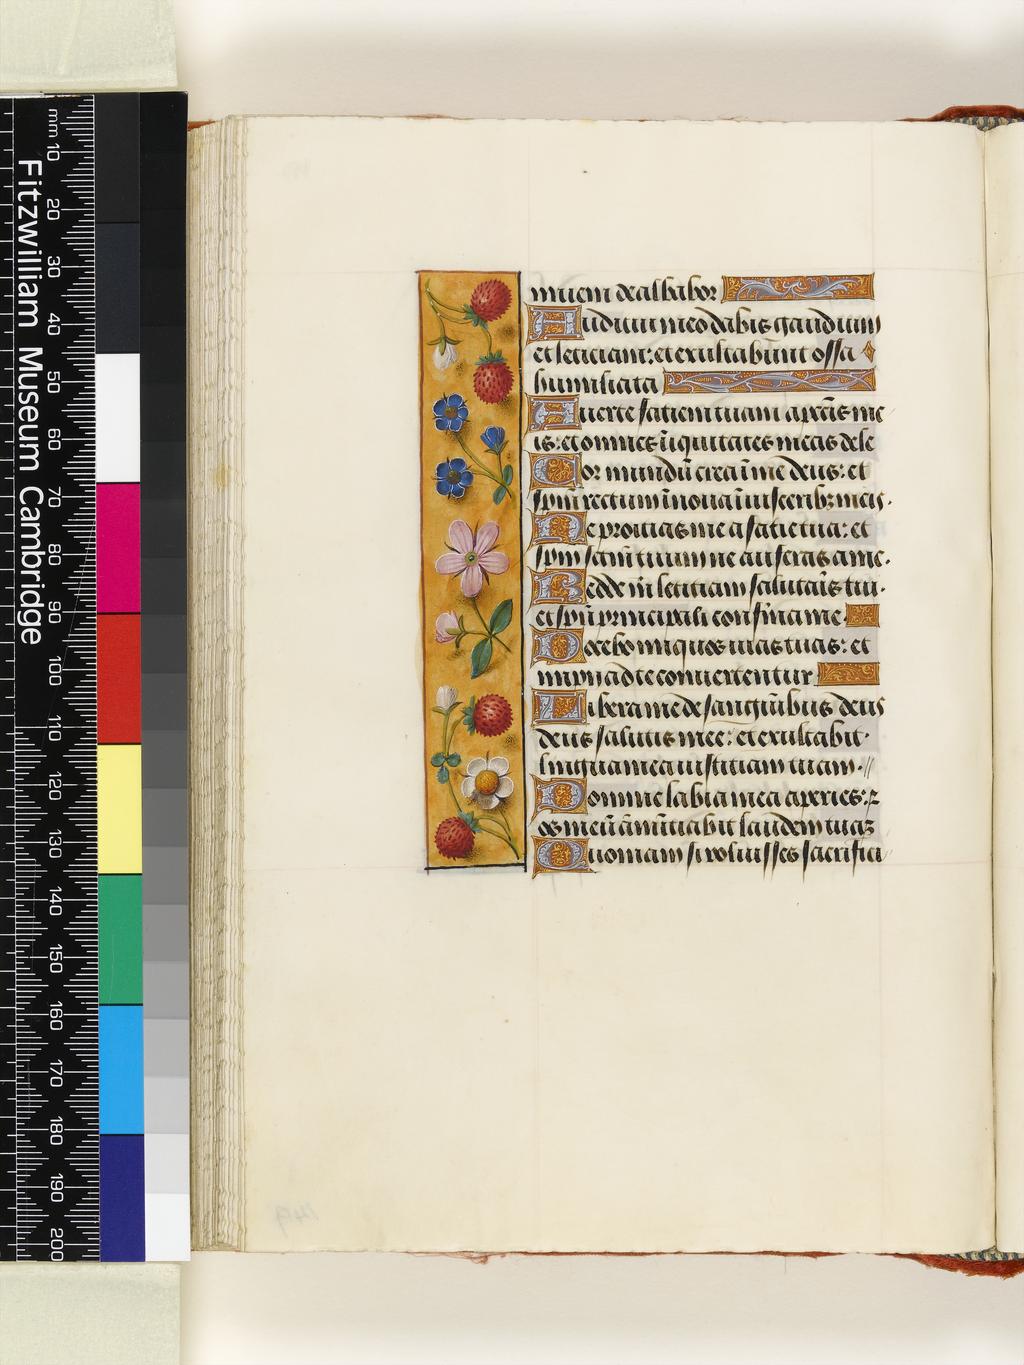 niuem dealbabor
Auditui meo dabis gaudium
et leticiam: et exultabunt ossa
humiliata
Auerte faciem tuam a pctis me
is: et omnes iniquitates meas dele
Cor mundū crea in me deus: et
spm rectum innoua in visceribz meis.
Ne proicias me a facie tua: et
spm sctm tuum ne auferas a me.
Redde m letitiam salutaris tui.
et spū principali confirma me.
Docebo iniquos vias tuas: et
impij ad te conuertentur
Libera me de sanguibus deus
deus salutis mee: et exultabit
lingua mea iustitiam tuam.
Domine labia mea aperies: z
os meū anūtiabit laudem tuaz
Quoniam si voluisses sacrifici
Fitzwilliam Museum Cambridge
mm 10 20 30 40 50 60 70 80 90 100 110 120 130 140 150 160 170 180 190 200